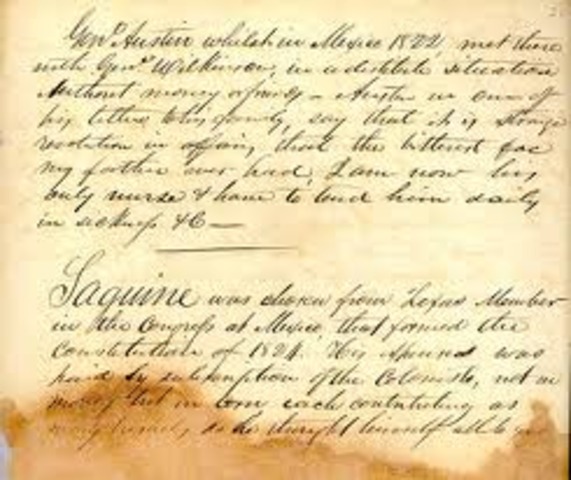 Genl. Austin whilst in Mexico 1822, met there
with Genl. Wilkinson, in a distitute situation
Without money or friends – Austin in one of
his letters to his family, say that it is strange
revolution in affairs, that the bitterest foe
my father ever had, I am now his
only nurse & have to tend him daily
in sickness &C —
Saquine was chosen from Texas Member
in the Congress at Mexico, that formed the
Constitution of 1824. His expenses was
paid by subscription of the Colonists, not in
money but in Corn each contributing as
many as he thought himself able